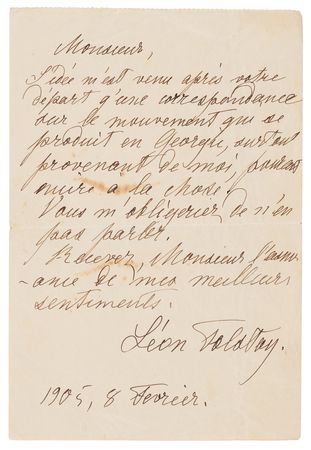 Monsieur,
L'idée m'est venu après votre
départ q'une correspondance
sur le mouvement qui se
produit en Georgie, surtout
provenant de moi, pourrait
nuire a la chose.
Vous m'obligerier de n'en
pas parler.
Recevez, Monsieur l'assu-
-rance de mes meilleurs
sentiments.
Léon Tolstoy.
1905, 8 Fevrier.